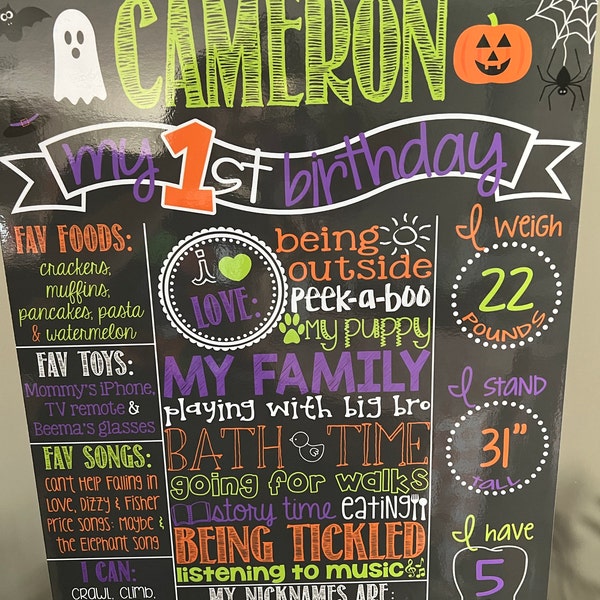 CAMERON
my 1st birthday
FAV FOODS:
crackers,
muffins,
pancakes, pasta
& watermelon
FAV TOYS:
Mommy's iPhone,
TV remote &
Beema's glasses
FAV SONGS:
Can't Help Falling in
Love, Dizzy & Fisher
Price Songs: Maybe &
the Elephant Song
I CAN:
CRAWL, CLIMB,
i
LOVE:
being
outside
PEEK-a-BOO
MY PUPPY
MY FAMILY
playing with big bro
BATH TIME
going for walks
story time eating
BEING TICKLED
listening to music
MY NICKNAMES ARE:
I WEIGH
22
POUNDS
I STAND
31"
TALL
I have
5